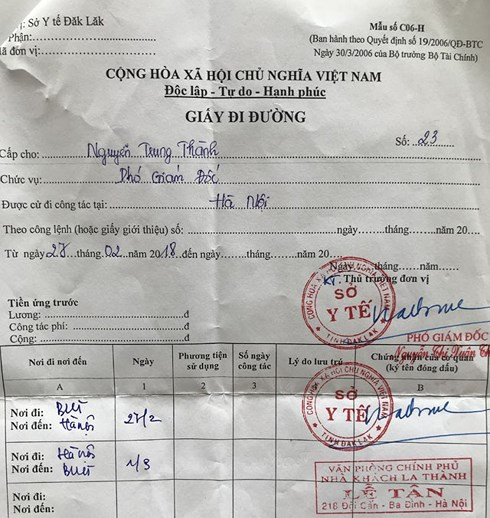 vị: Sở Y tế Đăk Lăk
Mẫu số C06-H
phận:
(Ban hành theo Quyết định số 19/2006/QĐ-BTC
đơn vị:
Ngày 30/3/2006 của Bộ trưởng Bộ Tài Chính)
CỘNG HÒA XÃ HỘI CHỦ NGHĨA VIỆT NAM
Độc lập - Tư do - Hạnh phúc
GIẤY ĐI ĐƯỜNG
Số: 23
Cấp cho: Nguyễn Trung Thành
Chức vụ: Phó Giám Đốc
Được cử đi công tác tại: Hà Nội
Theo công lệnh (hoặc giấy giới thiệu) số: ngày......tháng......năm 20....
Từ ngày 27 tháng 02 năm 2018 đến ngày......tháng......năm 20....
Ngày......tháng......năm......
KT. Thủ trưởng đơn vị
Tiền ứng trước
Lương:
Công tác phí:
Cộng:
CỘNG HÒA XÃ HỘI CHỦ NGHĨA VIỆT NAM
SỞ
Y TẾ
TỈNH ĐẮK LẮK
PHÓ GIÁM ĐỐC
Nơi đi nơi đến Ngày Phương tiện sử dụng Số ngày công tác Lý do lưu trú Chứng nhận của cơ quan (ký tên đóng dấu)
A 1 2 3 B
Nơi đi: BMT
Nơi đến: Hà nội
27/2
CỘNG HÒA XÃ HỘI CHỦ NGHĨA VIỆT NAM
SỞ
Y TẾ
TỈNH ĐẮK LẮK
Nơi đi: Hà nội
Nơi đến: BMT
1/3
VĂN PHÒNG CHÍNH PHỦ
NHÀ KHÁCH LA THÀNH
LỄ TÂN
218 Đội Cấn - Ba Đình - Hà Nội
Nơi đi:
Nơi đến: